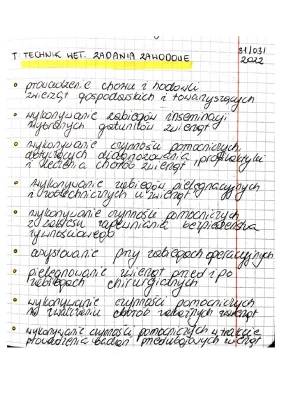 T TECHNIK WET. ZADANIA ZAWODOWE. 31/03/
2022
• prowadzenie chowu i hodowli
zwierząt gospodarskich i towarzyszących
• wykonywanie zabiegów inseminacji
wybranych gatunków zwierząt
• wykonywanie czynności pomocniczych
dotyczących diagnozowania, profilaktyki
i leczenia chorób zwierząt
• wykonywanie zabiegów pielęgnacyjnych
i zootechnicznych u zwierząt
• wykonywanie czynności pomocniczych
z zakresu zapewniania bezpieczeństwa
żywnościowego
• asystowanie przy zabiegach operacyjnych
• pielęgnowanie zwierząt przed i po
zabiegach chirurgicznych
• wykonywanie czynności pomocniczych
na zwalczaniu chorób zakaźnych zwierząt
• wykonywanie czynności pomocniczych w trakcie
prowadzenia badań przedubojowych zwierząt